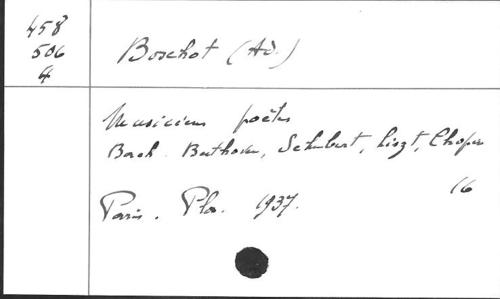 458
506
4
Boschot (Ad.)
Musiciens poètes
Bach. Beethoven, Schubert, Liszt, Chopin
16
Paris. Plon. 1937.